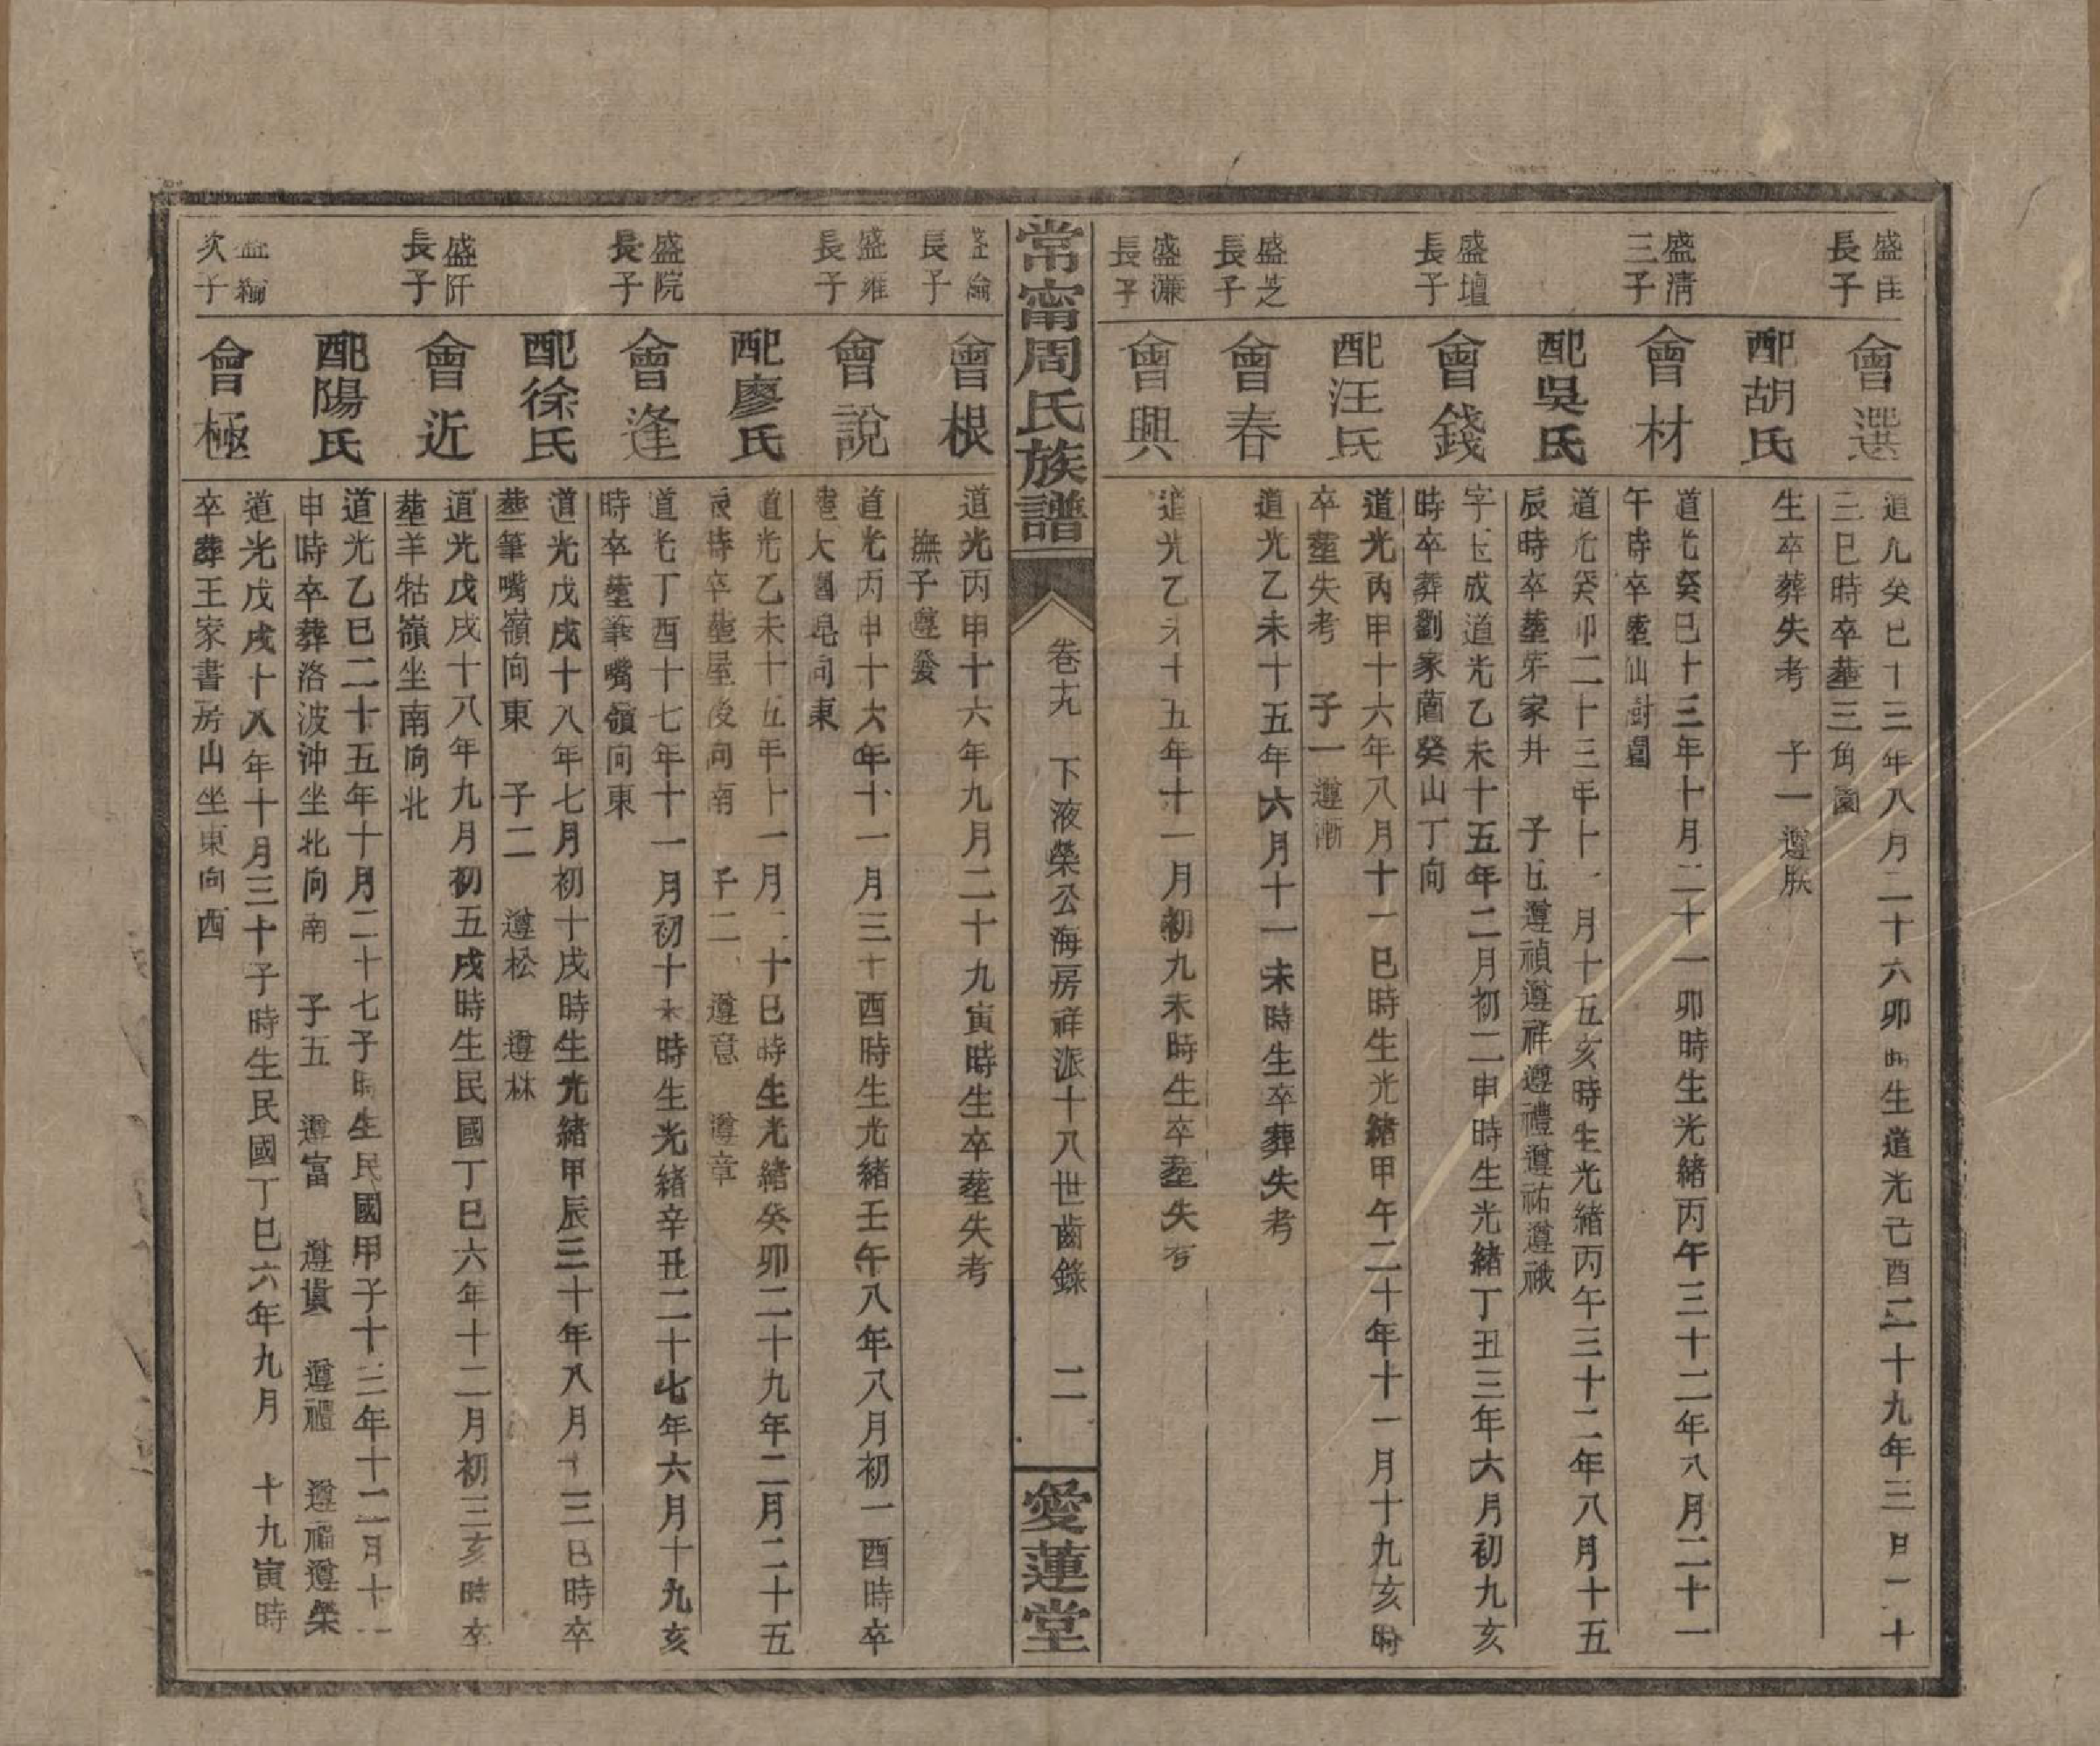 盛
長子
會選
道光癸巳十三年八月二十六卯時生道光己酉二十九年三月二十
三巳時卒塟三角園
配胡氏
生卒葬失考 子一 遵朕
盛淸
三子
會材
道光癸巳十三年十月二十一卯時生光緒丙午三十二年八月二十一
午時卒塟仙
配吳氏
道光癸卯二十三年十一月十五亥時生光緒丙午三十二年八月十五
辰時卒塟芽家井 子五遵禎遵祥遵禮遵祐遵祿
盛壇
長子
會錢
字玉成道光乙未十五年二月初二申時生光緒丁丑三年六月初九亥
時卒葬劉家薗癸山丁向
配汪氏
道光丙申十六年八月十一巳時生光緒甲午二十年十一月十九亥時
卒塟失考 子一遵漸
盛芝
長子
會春
道光乙未十五年六月十一未時生卒葬失考
盛濂
長子
會興
道光乙未十五年十一月初九未時生卒塟失考
常甯周氏族譜
卷十九 下液榮公海房祥派十八世齒錄 二
愛蓮堂
盛綸
長子
會根
道光丙申十六年九月二十九寅時生卒塟失考
撫子遵發
盛維
長子
會說
道光丙申十六年十一月三十酉時生光緒壬午八年八月初一酉時卒
塟大向東
配廖氏
道光乙未十五年十一月二十巳時生光緒癸卯二十九年二月二十五
辰時卒塟屋後向南 子二 遵意 遵章
盛院
長子
會逢
道光丁酉十七年十一月初十未時生光緒辛丑二十七年六月十九亥
時卒塟筆嘴嶺向東
配徐氏
道光戊戌十八年七月初十戌時生光緒甲辰三十年八月十三巳時卒
塟筆嘴嶺向東 子二 遵松 遵林
盛阡
長子
會近
道光戊戌十八年九月初五戌時生民國丁巳六年十二月初三亥時卒
塟羊牯嶺坐南向北
配陽氏
道光乙巳二十五年十月二十七子時生民國甲子十三年十二月十一
申時卒葬洛波沖坐北向南 子五 遵富 遵貴 遵禮 遵福遵榮
次子
會極
道光戊戌十八年十月三十子時生民國丁巳六年九月 十九寅時
卒葬王家書房山坐東向西